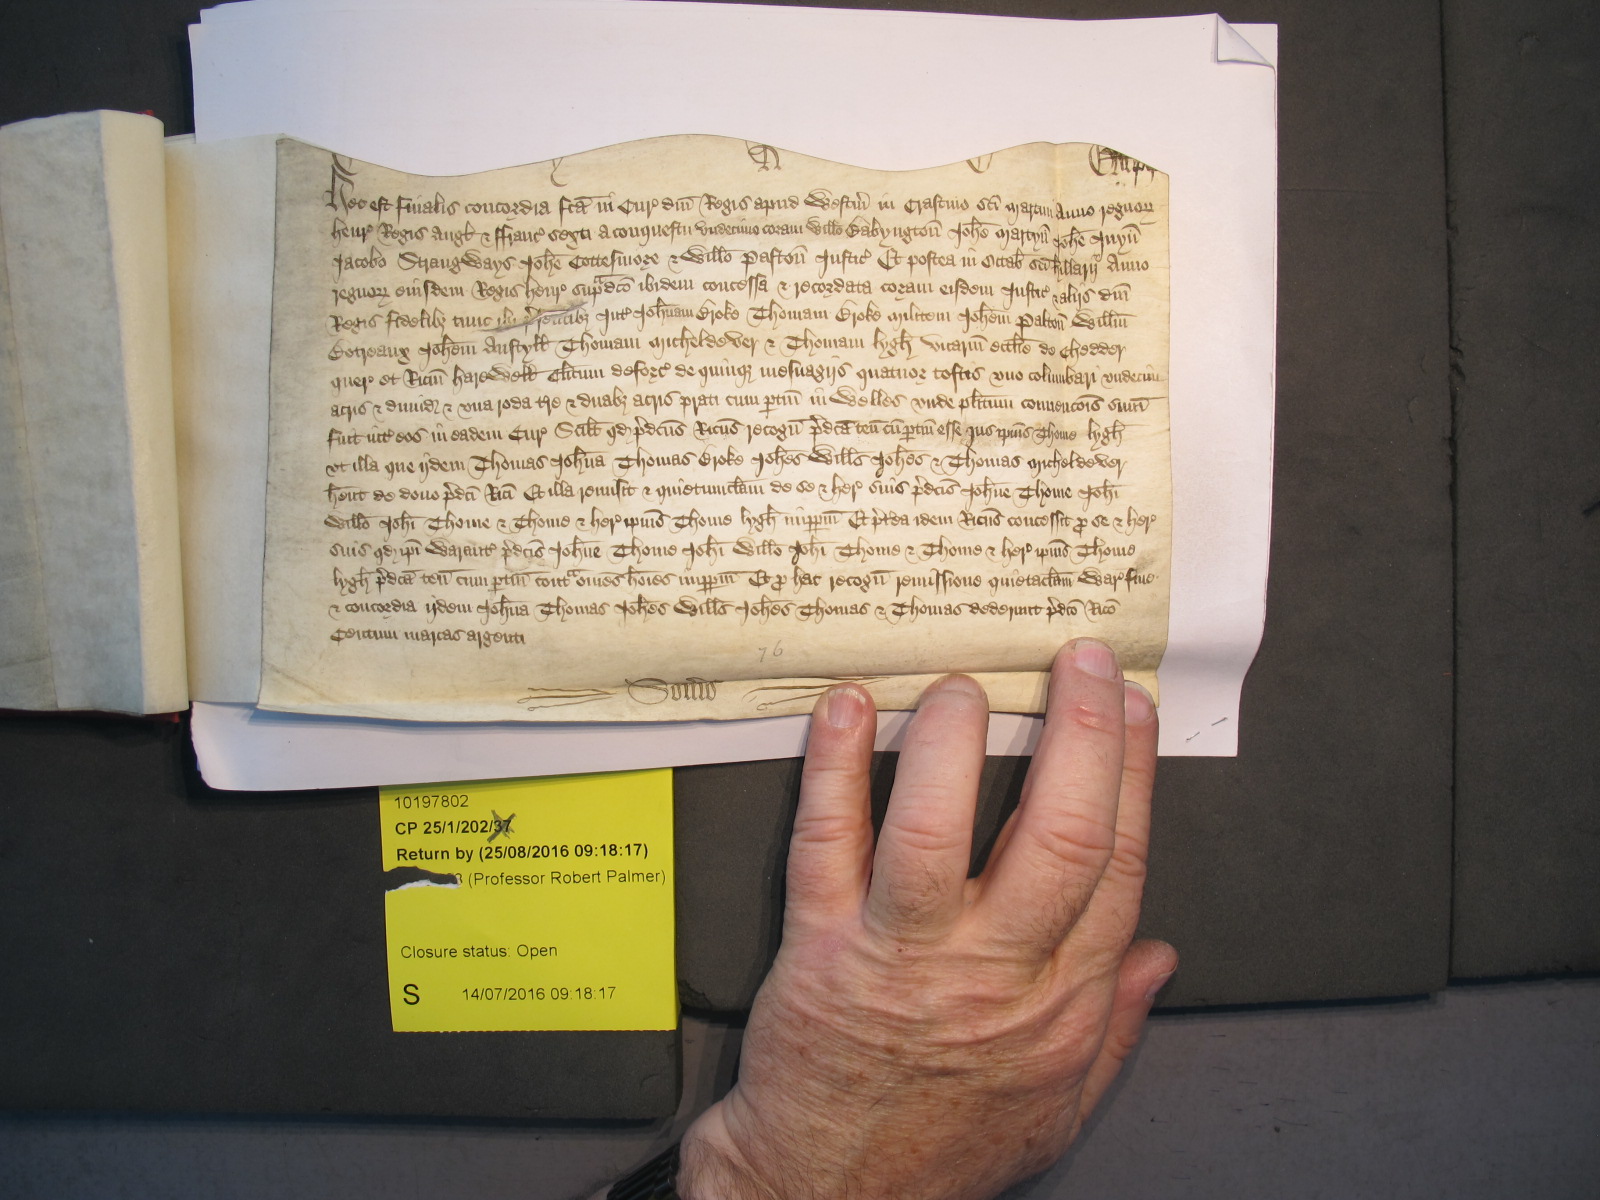 Hec est finalis concordia fcã in Cur' dni Regis apud Westm̃ in Crastino sci Martini Anno regnor̃
Henr' Regis Angł & Ffranc' sexti a conquestu undecimo coram Willo Babyngton̄ Johe Martyn̄ Johe Juyn̄
Jacobo Strangways Johe Cottesmore & Willo Paston̄ Justic' Et postea in Octab̃ sci Hillarij Anno
regnor̃ eiusdem Regis Henr' sup̃dc̃o ibidem concessa & recordata coram eisdem Justic' & alijs dni
Regis fidelibȝ tunc ibi p̃sentibȝ Int' Joh̃nam Broke Thomam Broke militem Joh̃em Palton̄ Willm̃
Botreaux Joh̃em Austyłł Thomam Micheldever & Thomam Lygh̃ vicariũ ecclie de Chedder
quer' et Ric̃m Harewełł Cl̃icum deforc' de quinqȝ mesuagijs quatuor toftis uno columbari undecim
acris & dimid' & una roda t̃re & duabȝ acris prati cum p̃tin̄ in Welles unde pl̃itum convenc̃ois sum̃
fuit int' eos in eadem Cur' Scilt qd p̃dcũs Ric̃us recogñ p̃dcã ten̄ cũ p̃tin̄ esse Jus ip̃ius Thome Lygh̃
ut illa que ijdem Thomas Joh̃na Thomas Broke Joh̃es Will̃s Joh̃es & Thomas Micheldever
hent de dono p̃dc̃i Ric̃i Et illa remisit & quietumclam̃ de se & her' suis p̃dc̃is Joh̃ne Thome Joh̃i
Willo Joh̃i Thome & Thome & her' ip̃ius Thome Lygh̃ imp̃p̃m Et p̃t̃ea idem Ric̃us concessit p̱ se & her'
suis qd ip̃i Warant' p̃dc̃is Joh̃ne Thome Joh̃i Willo Joh̃i Thome & Thome & her' ip̃ius Thome
Lygh̃ p̃dcã ten̄ cum p̃tin̄ cont̃ omñes hoĩes imp̃p̃m Et p̱ hac recogñ remissione quietaclam̃ War' fine
& concordia ijdem Joh̃na Thomas Joh̃es Will̃s Joh̃es Thomas & Thomas dederunt p̃dc̃o Ric̃o
Centum marcas argenti
76
Som̃s
10197802
CP 25/1/202/37
Return by (25/08/2016 09:18:17)
(Professor Robert Palmer)
Closure status: Open
S 14/07/2016 09:18:17